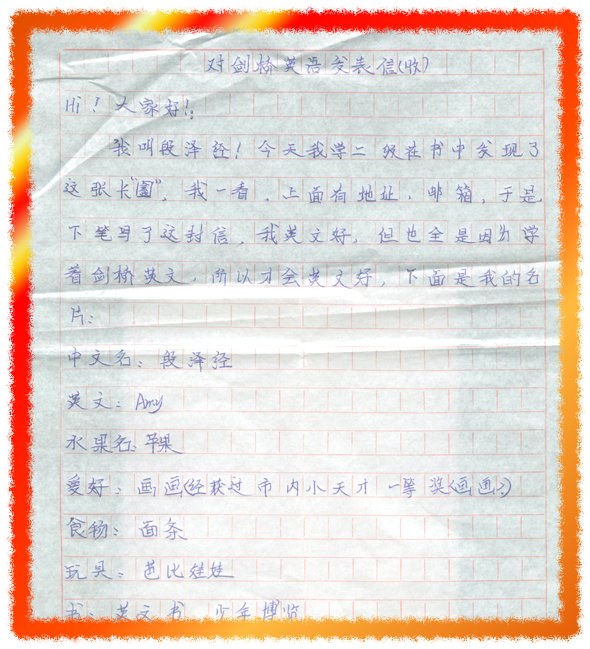 对剑桥英语发表信(收)
Hi！大家好！
我叫段泽泾！今天我学二级在书中发现了
这张卡“圖”，我一看，上面有地址，邮箱，于是
下笔写了这封信，我英文好，但也全是因为学
着剑桥英文，所以才会英文好，下面是我的名
片：
中文名：段泽泾
英文：Amy
水果名：苹果
爱好：画画(经获过市内小天才一等奖<画画>)
食物：面条
玩具：芭比娃娃
书：英文书，少年博览